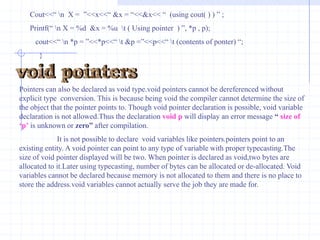 Cout<<“ \n  X =  ”<<x<<“ &x = “<<&x<< “  (using cout( ) ) ” ;
Printf(“ \n X = %d  &x = %u  \t ( Using pointer  ) ”, *p , p);
cout<<“ \n *p = ”<<*p<<“ \t &p =”<<p<<“ \t (contents of ponter) “;
}
void pointers
Pointers can also be declared as void type.void pointers cannot be dereferenced without
explicit type  conversion. This is because being void the compiler cannot determine the size of
the object that the pointer points to. Though void pointer declaration is possible, void variable
declaration is not allowed.Thus the declaration void p will display an error message “ size of
‘p’ is unknown or zero” after compilation.
It is not possible to declare  void variables like pointers.pointers point to an
existing entity. A void pointer can point to any type of variable with proper typecasting.The
size of void pointer displayed will be two. When pointer is declared as void,two bytes are
allocated to it.Later using typecasting, number of bytes can be allocated or de-allocated. Void
variables cannot be declared because memory is not allocated to them and there is no place to
store the address.void variables cannot actually serve the job they are made for.